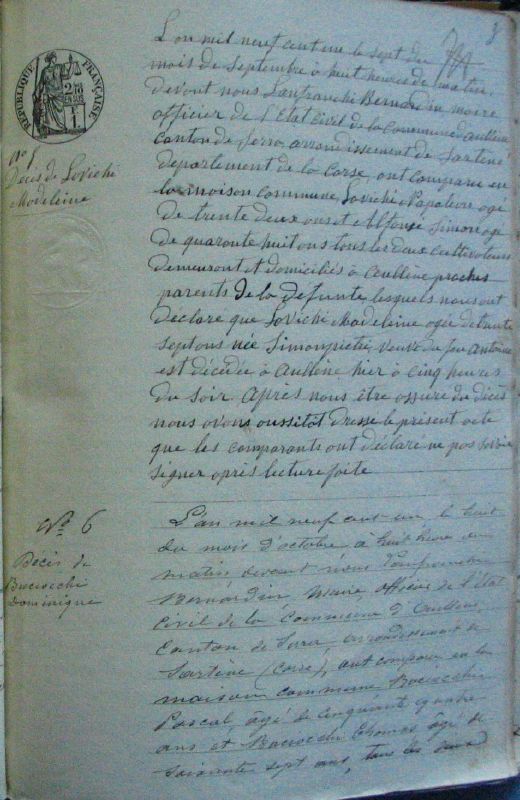 8
RÉPUBLIQUE FRANÇAISE
L'an mil neuf cent un le sept du
mois de Septembre à huit heures du matin
devant nous Lanfranchi Bernardin maire
officier de l'Etat Civil de la Commune d'Aullène
Canton de Serra arrondissement de Sartène
département de la Corse, ont comparu en
la maison commune, Lovichi Napoléon agé
de trente deux ans et Alfonsi Simon agé
de quarante huit ans tous les deux cultivateurs
demeurant et domiciliés à Aullène proches
parents de la défunte, lesquels nous ont
déclaré que Lovichi Madeleine agée de trente
sept ans née Simonpietri, veuve de feu Antoine
est décédée à Aullène hier à cinq heures
du soir. Après nous être assuré du décès
nous avons aussitôt dressé le présent acte
que les comparants ont déclaré ne pas savoir
signer après lecture faite
Décès de Lovichi
Madeleine
No 6
Décès de
Bacciochi
Dominique
L'an mil neuf cent un le huit
du mois d'octobre, à huit heures du
matin devant nous Lanfranchi
Bernardin, Maire officier de l'état
Civil de la Commune d'Aullène,
Canton de Serra arrondissement de
Sartène (Corse), ont comparu en la
maison commune Bacciochi
Pascal âgé de cinquante quatre
ans et Bacciochi Thomas âgé de
soixante sept ans, tous les deux